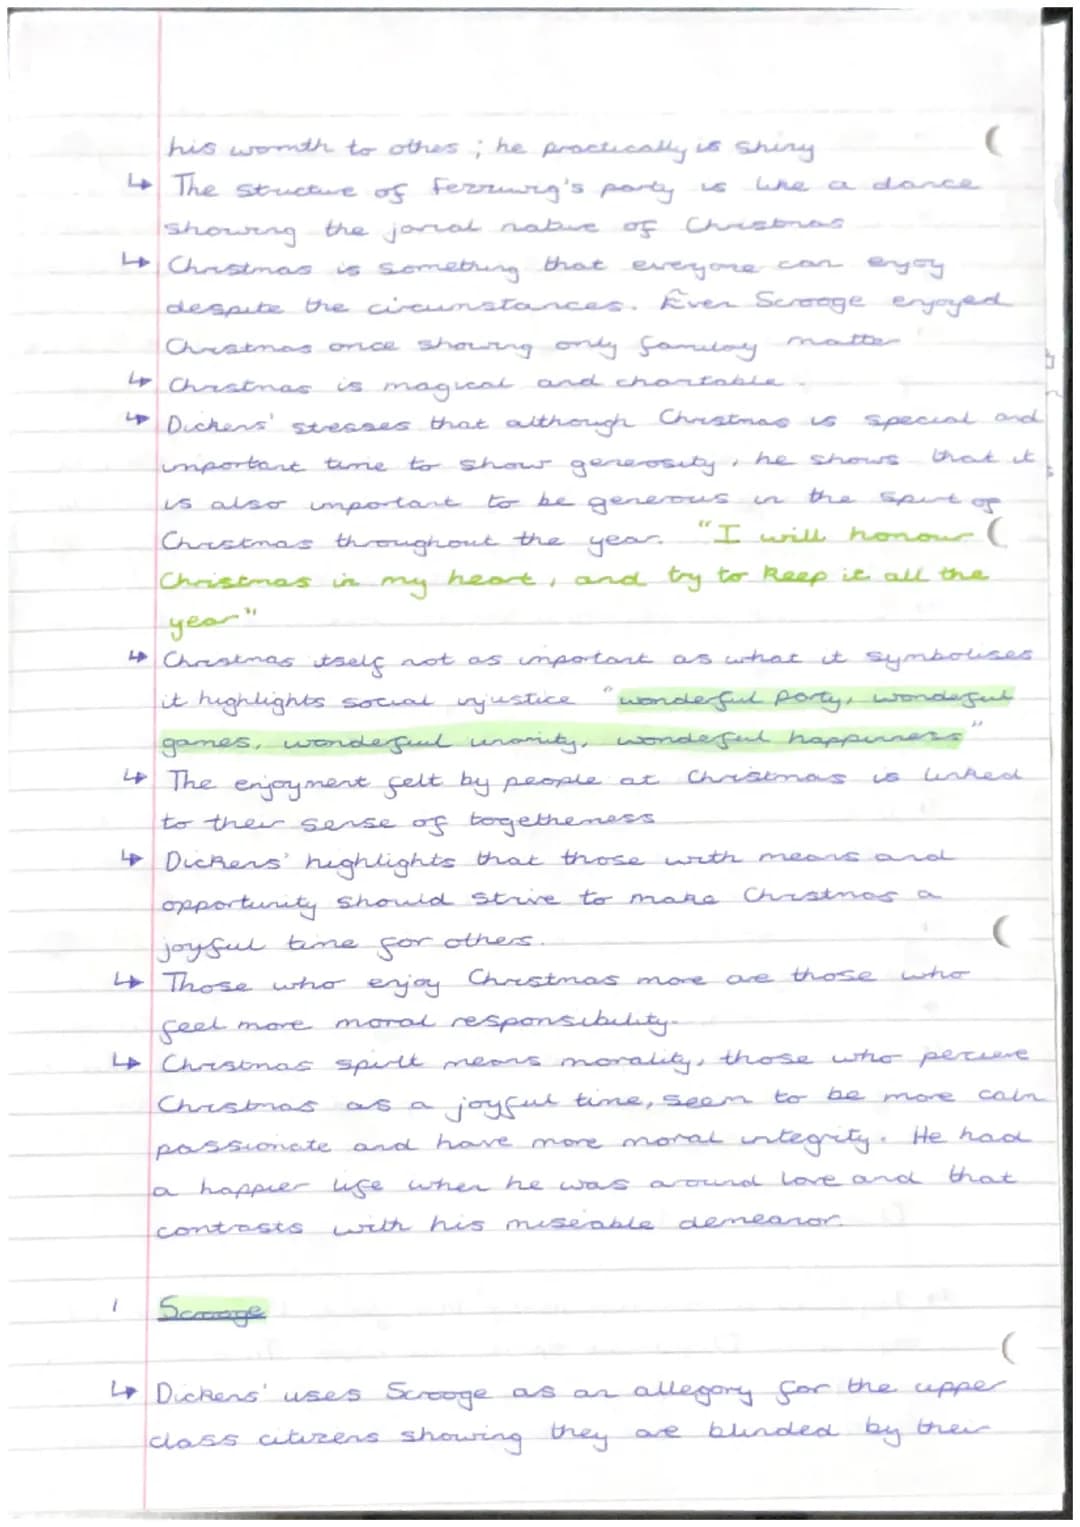 his womth to othes ; he practically is shiny
↳ The structure of Fezziwig's party is like a dance
showing the jovial nature of Christmas
↳ Christmas is something that everyone can enjoy
despite the circumstances. Even Scrooge enjoyed
Christmas once showing only family matter
↳ Christmas is magical and charitable.
↳ Dickens' stresses that although Christmas is special and
important time to show generosity, he shows that it
is also important to be generous in the spirit of
Christmas throughout the year. "I will honour
Christmas in my heart, and try to keep it all the
year"
↳ Christmas itself not as important as what it symbolises
it highlights social injustice "wonderful party, wonderful
games, wonderful unanity, wonderful happiness"
↳ The enjoyment felt by people at Christmas is linked
to their sense of togetherness
↳ Dickens' highlights that those with means and
opportunity should strive to make Christmas a
joyful time for others.
↳ Those who enjoy Christmas more are those who
feel more moral responsibility.
↳ Christmas spirit means morality, those who percieve
Christmas as a joyful time, seem to be more com
passionate and have more moral integrity. He had
a happier life when he was around love and that
contrasts with his miserable demeanor.
Scrooge
↳ Dickens' uses Scrooge as an allegory for the upper
class citizens showing they are blinded by their